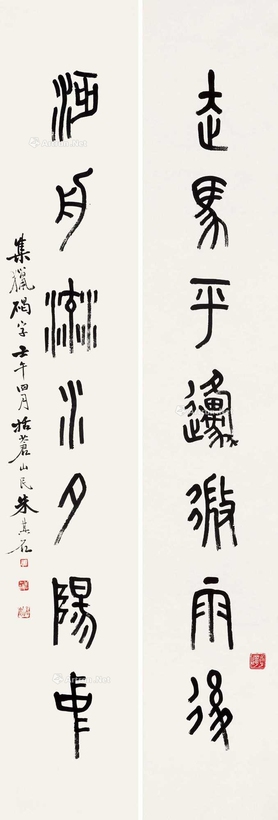 走馬平邍微雨後
舟流水夕陽中
集獵碣字壬午四月括蒼山民朱其石